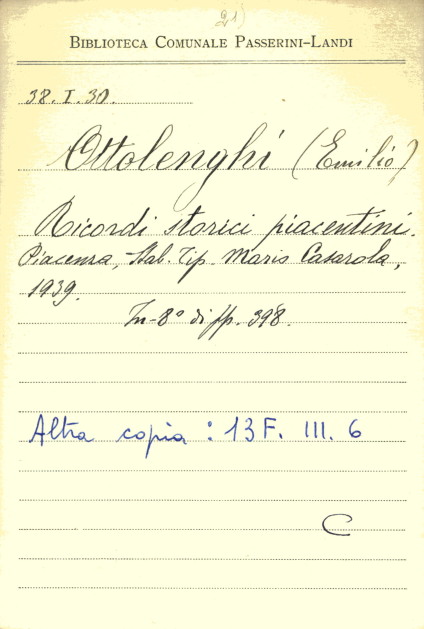 21)
BIBLIOTECA COMUNALE PASSERINI-LANDI
38. I. 30.
Ottolenghi (Emilio)
Ricordi storici piacentini.
Piacenza, Stab. Tip. Mario Casarola,
1939.
In-8° di pp. 398.
Altra copia : 13 F. III. 6
C